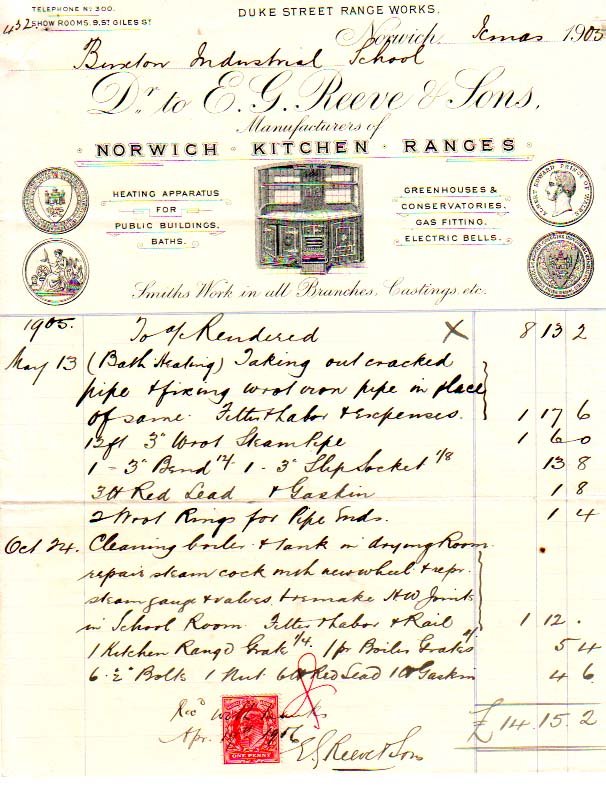 TELEPHONE No 300.
432. SHOW ROOMS. 9, St GILES St
DUKE STREET RANGE WORKS.
Norwich, Xmas 1905
Buxton Industrial School
Dr. to E. G. Reeve & Sons,
Manufacturers of
NORWICH · KITCHEN · RANGES
HEATING APPARATUS
FOR
PUBLIC BUILDINGS,
BATHS.
GREENHOUSES &
CONSERVATORIES,
GAS FITTING,
ELECTRIC BELLS.
Smiths Work in all Branches, Castings, etc.
1905. To a/c Rendered X 8 13 2
May 13 (Bath Heating) Taking out cracked
pipe & fixing wrot iron pipe in place
of same. Fitter & labor & Expenses. 1 17 6
12ft 3" Wrot Steam Pipe 1 6 0
1 - 3" Bend 12/- 1 - 3" Slip Socket 1/8 13 8
3 lb Red Lead & Gaskin 1 8
2 Wrot Rings for Pipe Ends. 1 4
Oct 24. Cleaning boiler & tank in drying Room
repair steam cock with new wheel & repr.
steam gauge & valves & remake HW Joints
in School Room. Fitter & labor & Rail 1 12 .
1 Kitchen Range Grate 1/4 1 pr Boiler Grates 5 4
6 - ½" Bolts 1 Nut Red Lead Gaskin 4 6
£ 14. 15. 2
Recd with thanks
Apr. 1906
E G Reeve & Son
ONE PENNY